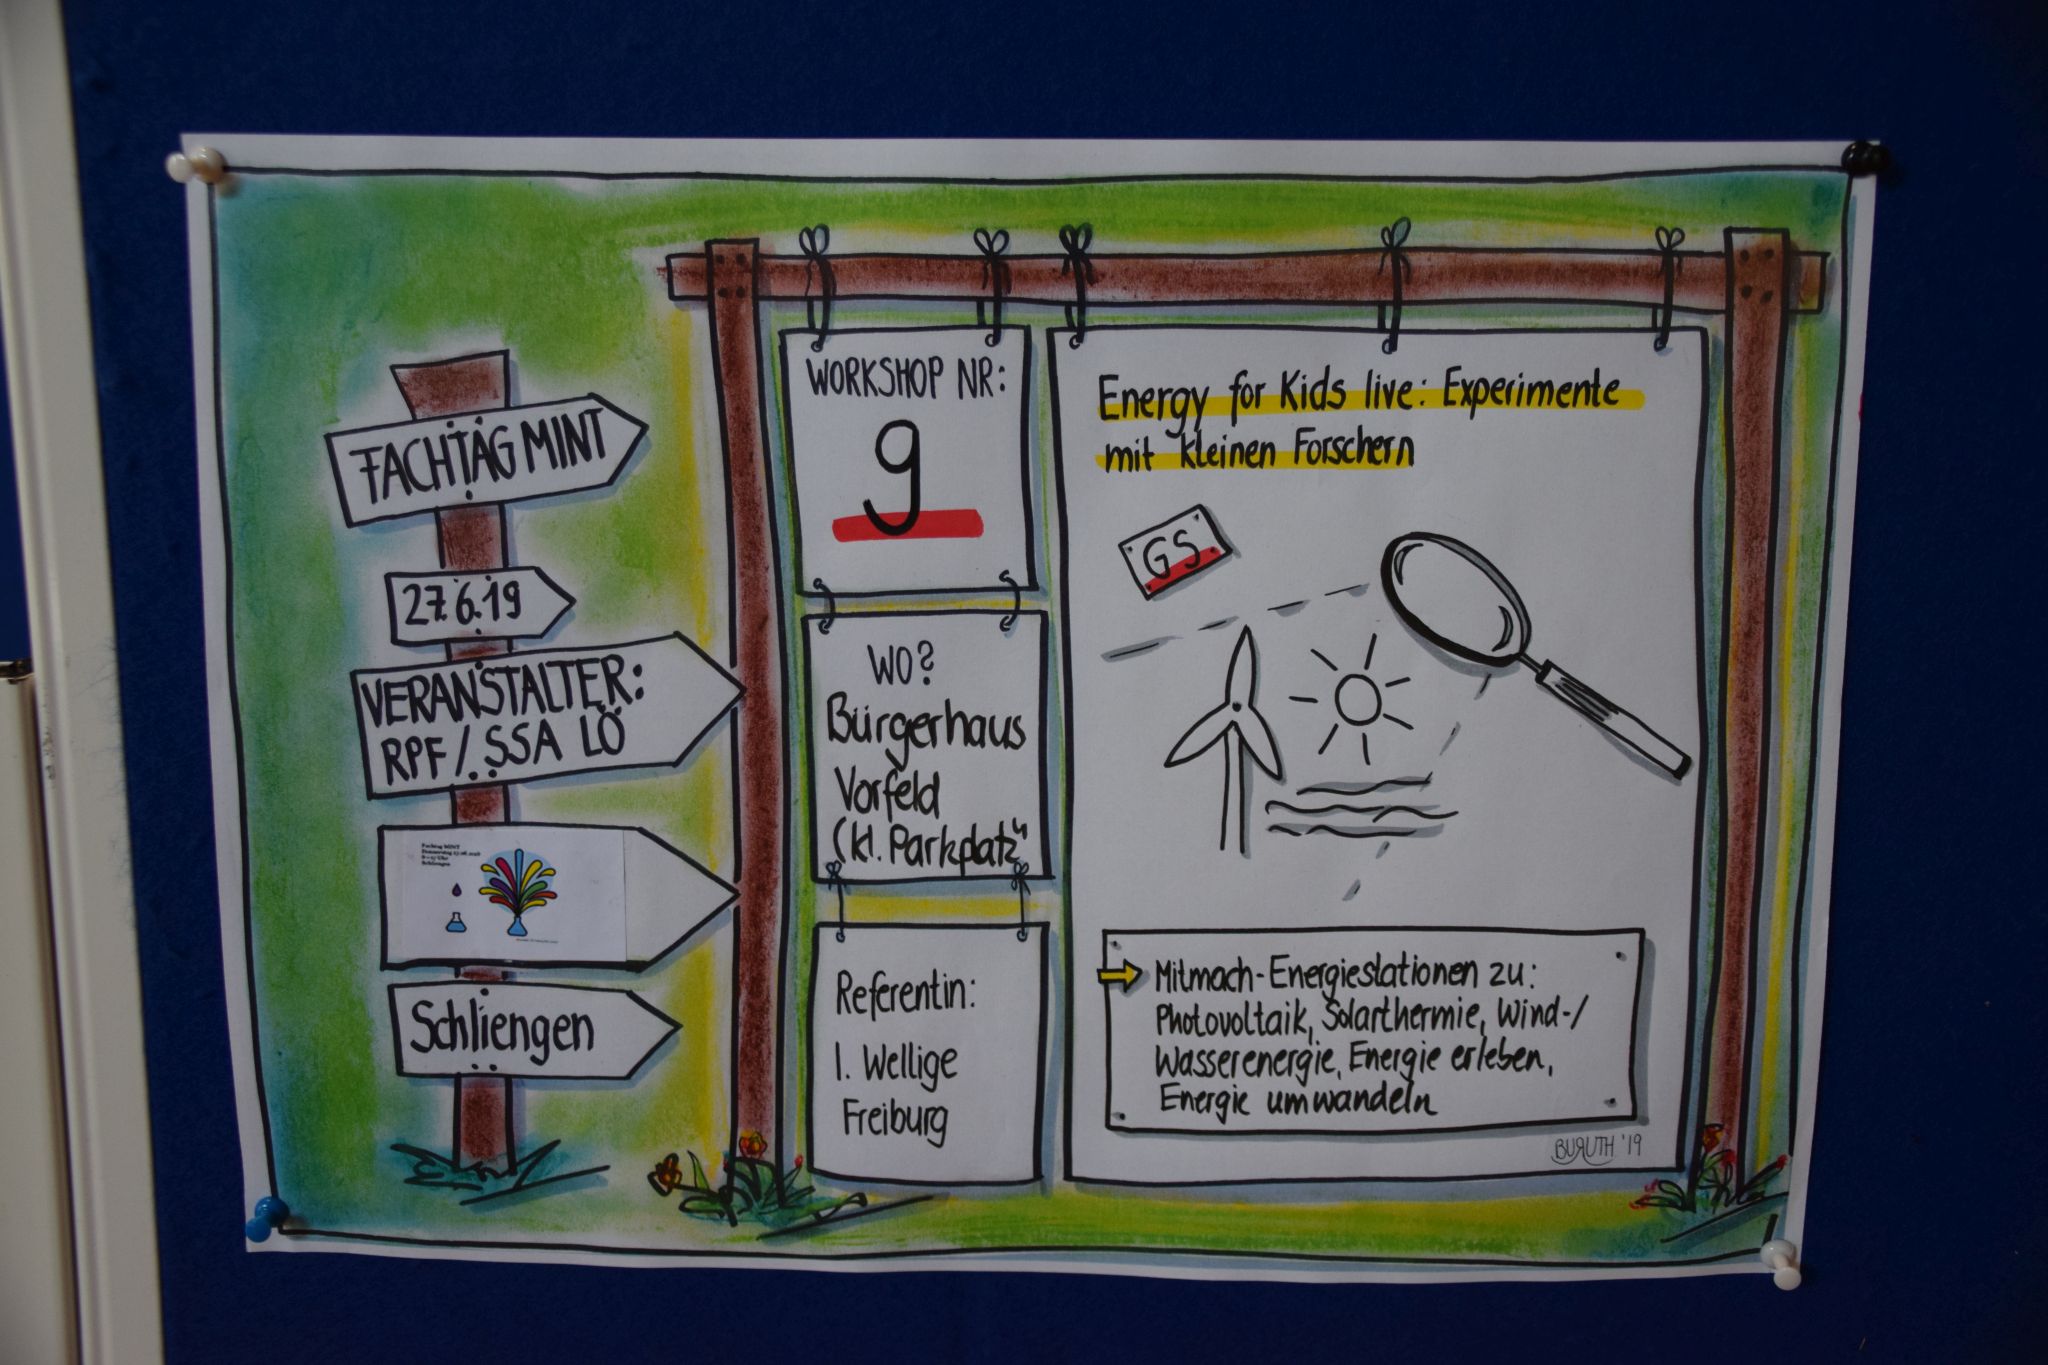 FACHTAG MINT
27.6.19
VERANSTALTER:
RPF / SSA LÖ
Fachtag MINT
Schliengen
Schliengen
WORKSHOP NR:
9
WO?
Bürgerhaus
Vorfeld
(kl. Parkplatz"
Referentin:
I. Wellige
Freiburg
Energy for Kids live: Experimente
mit kleinen Forschern
GS
Mitmach-Energiestationen zu:
Photovoltaik, Solarthermie, Wind-/
Wasserenergie, Energie erleben,
Energie umwandeln
BURUTH '19